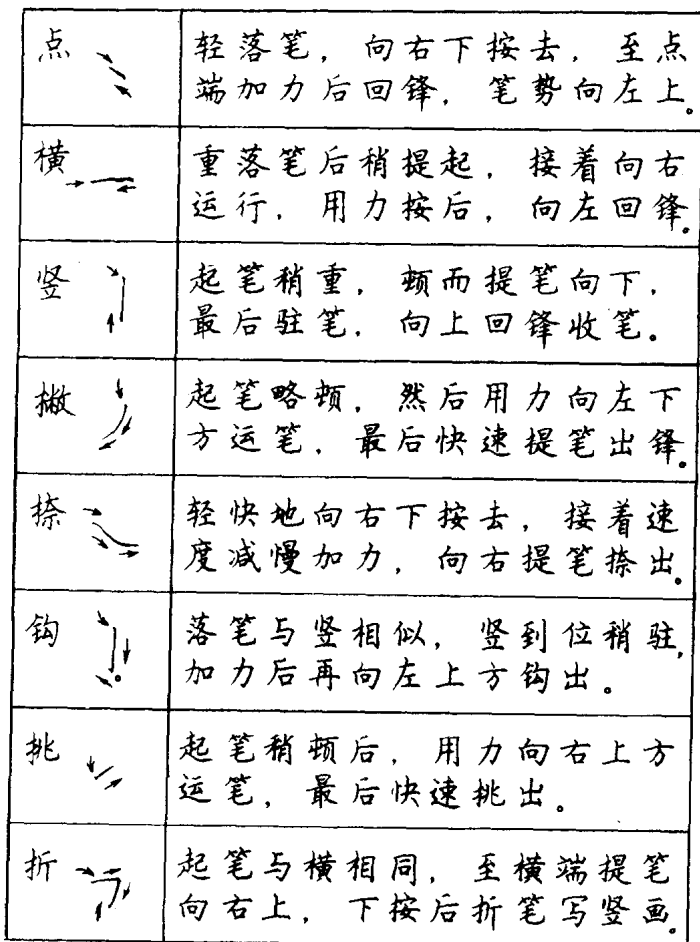 点
轻落笔，向右下按去，至点
端加力后回锋，笔势向左上。
横
重落笔后稍提起，接着向右
运行，用力按后，向左回锋。
竖
起笔稍重，顿而提笔向下，
最后驻笔，向上回锋收笔。
撇
起笔略顿，然后用力向左下
方运笔，最后快速提笔出锋。
捺
轻快地向右下按去，接着速
度减慢加力，向右提笔捺出。
钩
落笔与竖相似，竖到位稍驻，
加力后再向左上方钩出。
挑
起笔稍顿后，用力向右上方
运笔，最后快速挑出。
折
起笔与横相同，至横端提笔
向右上，下按后折笔写竖画。